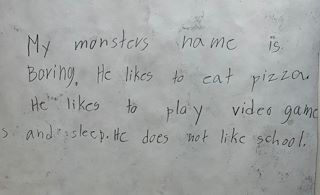 My monsters name is
Boring. He likes to eat pizza.
He likes to play video game
s and sleep. He does not like school.